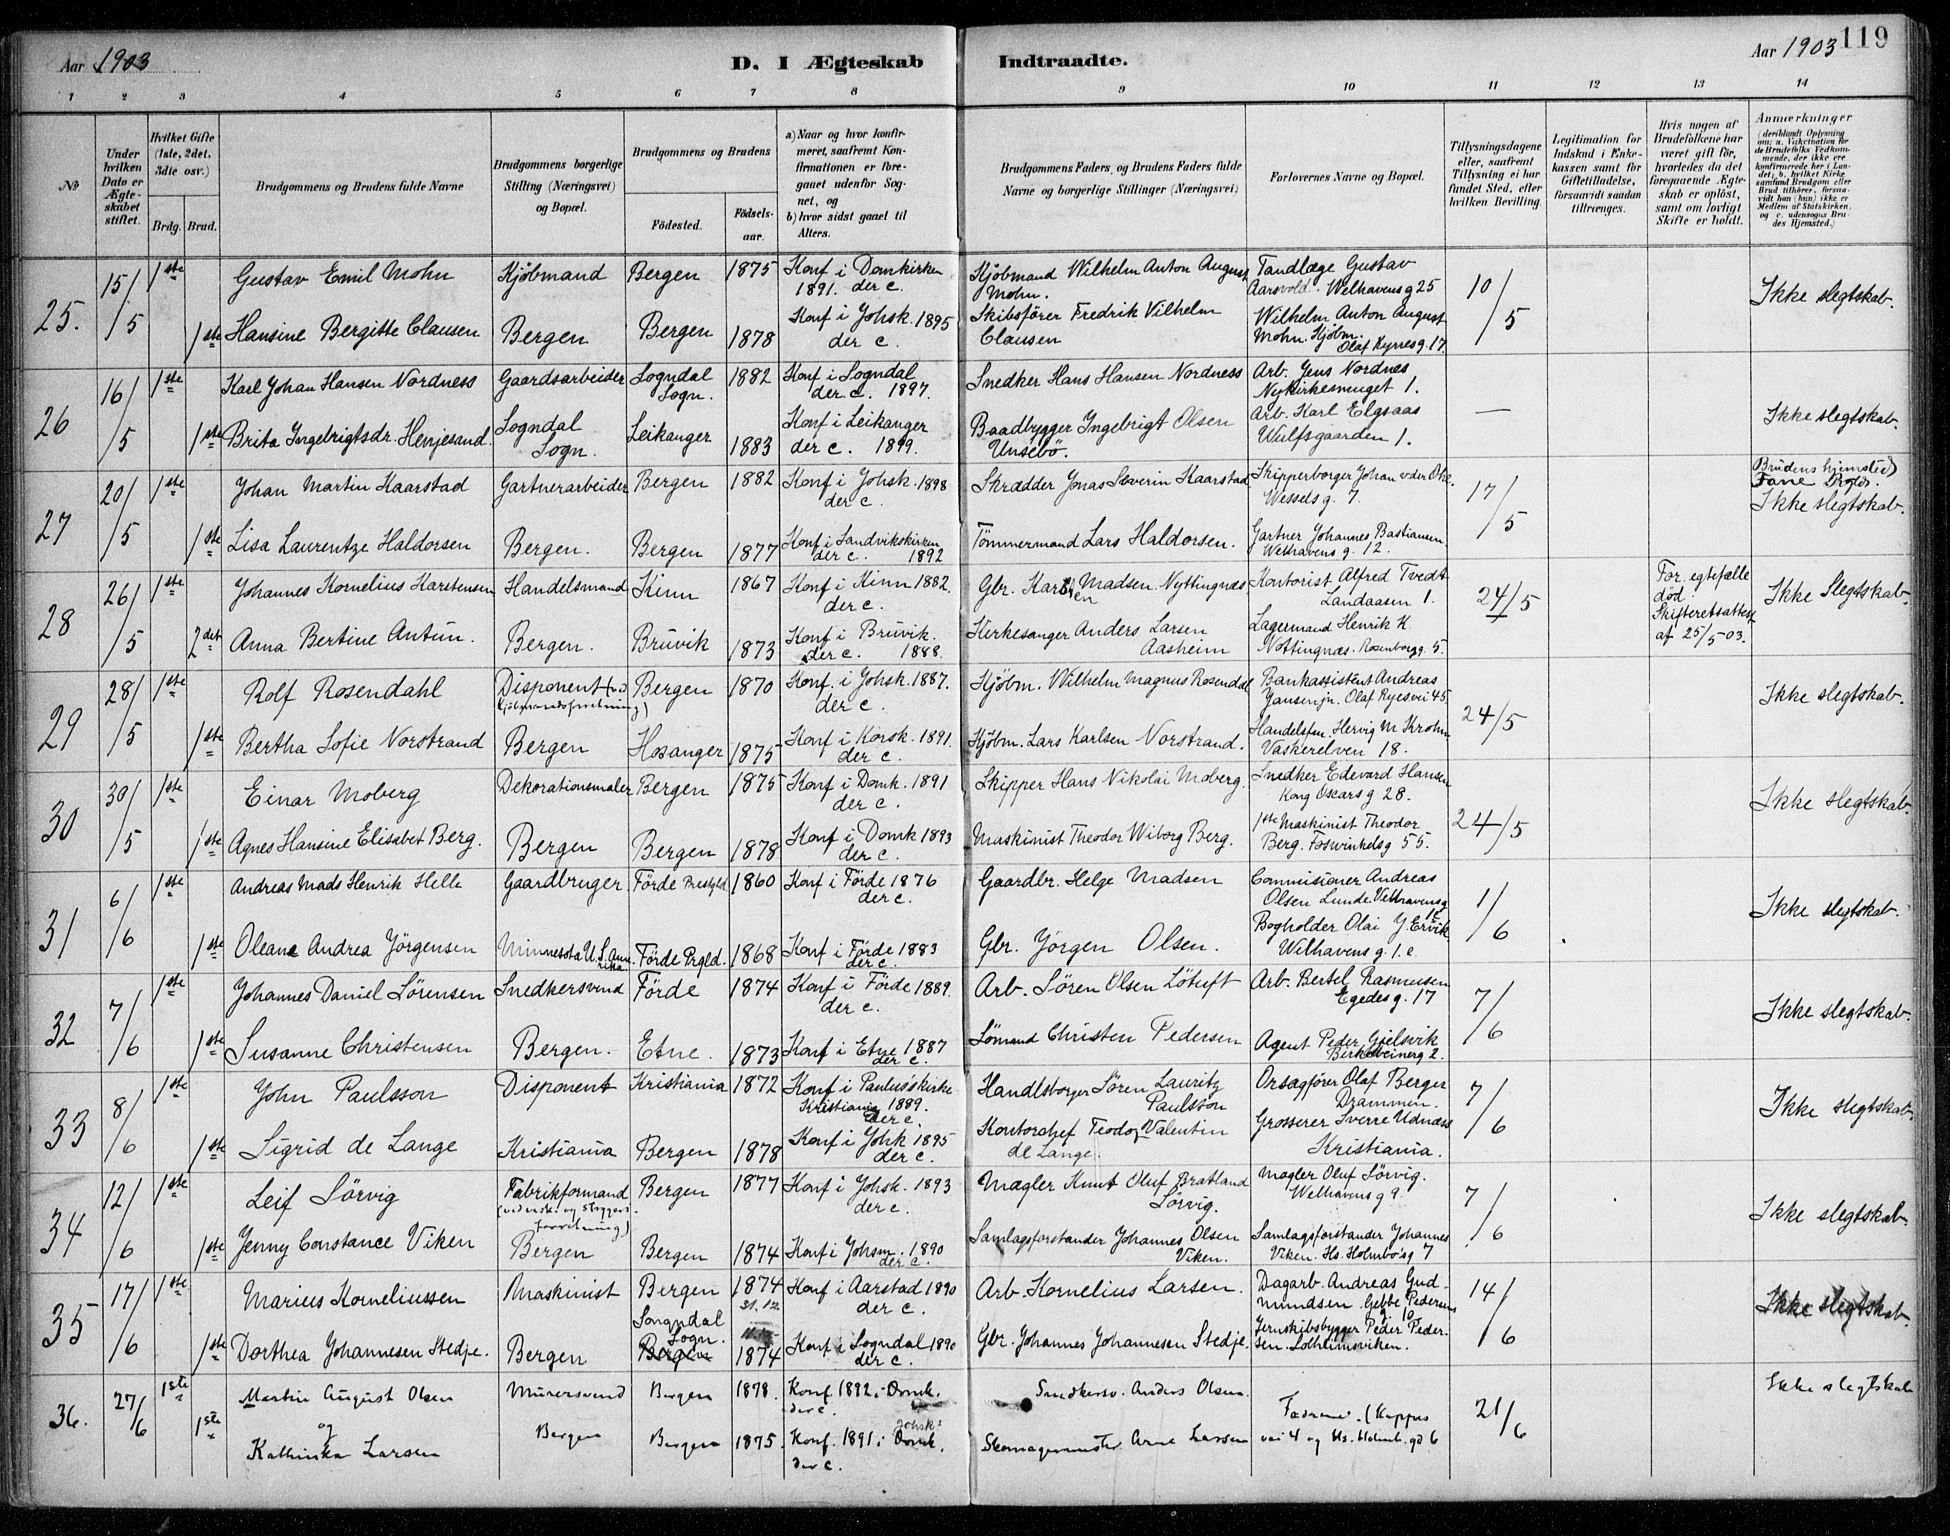 Aar 1903
D. I Ægteskab Indtraadte.
Aar 1903 119
1 2 3 4 5 6 7 8 9 10 11 12 13 14
№
Under hvilken Dato er Ægteskabet stiftet.
Hvilket Gifte (1ste, 2det, 3die osv.)
Brdg. Brud.
Brudgommens og Brudens fulde Navne
Brudgommens borgerlige Stilling (Næringsvei) og Bopæl.
Brudgommens og Brudens
Fødested.
Fødsels-aar.
a) Naar og hvor konfirmeret, saafremt Konfirmationen er foregaaet udenfor Sognet, og
b) hvor sidst gaaet til Alters.
Brudgommens Faders, og Brudens Faders fulde Navne og borgerlige Stillinger (Næringsvei)
Forlovernes Navne og Bopæl.
Tillysningsdagene eller, saafremt Tillysning ei har fundet Sted, efter hvilken Bevilling.
Legitimation for Indskud i Enkekassen samt for Giftetilladelse, forsaavidt saadan tiltrænges.
Hvis nogen af Brudefolkene har været gift før, hvorledes da det foregaaende Ægteskab er opløst, samt om lovligt Skifte er holdt.
Anmærkninger
(deriblandt Oplysning om: a. Vakcination for de Brudefolks Vedkommende, der ikke ere konfirmerede her i Landet; b. hvilket Kirkesamfund Brudgom eller Brud tilhører, forsaavidt han (hun) ikke er Medlem af Statskirken, og c. udensogns Brudes Hjemsted.)
25. 15/5 1ste Gustav Emil Mohn Kjøbmand Bergen 1875 Konf i Domkirken 1891. der c. Kjøbmand Wilhelm Anton August Mohn. Tandlæge Gustav Aarsvold. Welhavens g 25 10/5 Ikke slegtskab.
1ste Hansine Bergitte Clausen Bergen Bergen 1878 Konf i Johsk. 1895 der c. Skibsfører Fredrik Vilhelm Clausen Wilhelm Anton August Mohn. Kjøbm. Olaf Kyrresg. 17.
26 16/5 1ste Karl Johan Hansen Nordness Gaardsarbeider Sogndal Sogn. 1882 Konf i Sogndal der c. 1897. Snedker Hans Hansen Nordness Arb. Jens Nordnes Nykirkesmuget 1. — Ikke slegtskab.
1ste Brita Ingebrigtsdr. Henjesand. Sogndal Sogn. Leikanger 1883 Konf i Leikanger der c. 1899. Baadbygger Ingebrigt Olsen Unsebö. Arb. Karl Elgsaas Wulfsgaarden 1.
27 20/5 1ste Johan Martin Kaarstad Gartnerarbeider Bergen 1882 Konf i Johsk. 1898 der c. Skrædder Jonas Severin Kaarstad Skipperborger Johan v der Ohe. Wessels g. 7. 17/5 Brudens hjemsted Fane Ikke slegtskab.
1ste Lisa Laurentze Haldorsen Bergen. Bergen 1877 Konf i Sandvikskirken der c. 1892 Tömmermand Lars Haldorsen. Gartner Johannes Bastiansen Welhavens g. 12.
28 26/5 1ste Johannes Kornelius Karstensen Handelsmand Kinn 1867 Konf i Kinn 1882. der c. Gbr. Karsten Madsen Nyttingnæs Kontorist Alfred Tvedt Landaasen 1. 24/5 For. egtefælle död. Skifteretsattest af 25/5 03. Ikke Slegtskab.
2det Anna Bertine Antun. Bergen. Bruvik 1873 Konf i Bruvik. der c. 1888. Kirkesanger Anders Larsen Aasheim Lagermand Henrik K. Nottingnæs. Rosenborgg. 5.
29 28/5 1ste Rolf Rosendahl Disponent (ved kjöbmandsforretning) Bergen 1870 Konf. i Johsk. 1887. der c. Kjøbm. Wilhelm Magnus Rosendal Bankassistent Andreas Jansen jn. Olaf Ryesvei 45. 24/5 Ikke slegtskab.
1ste Bertha Sofie Norstrand Bergen Hosanger 1875 Konf i Korsk. 1891. der c. Kjøbm. Lars Karlsen Norstrand. Handelsfm. Hervig M Krohn Vaskerelven 18.
30 30/5 1ste Einar Moberg Dekorationsmaler Bergen 1875 Konf i Domk. 1891 der c. Skipper Hans Nikolai Moberg. Snedker Edevard Hansen Kong Oscars g 28. 24/5 Ikke slegtskab.
1ste Agnes Hansine Elisabet Berg. Bergen Bergen 1878 Konf i Domk 1893 der c. Maskinist Theodor Wiborg Berg. 1ste Maskinist Theodor Berg. Fosvinkelsg 55.
31 6/6 1ste Andreas Mads Henrik Helle Gaardbruger Förde Prestgld 1860 Konf i Förde 1876 der c. Gaardbr. Helge Madsen Commisioner Andreas Olsen Lunde. Velhavensg 1c 1/6 Ikke slegtskab.
1ste Oleane Andrea Jörgensen Minnesota U.S. Amerika Förde Prgld. 1868 Konf i Förde 1883 der c. Gbr. Jörgen Olsen. Bogholder Olai J. Ervik Welhavens g. 1. c.
32 7/6 1ste Johannes Daniel Sörensen Snedkersvend Förde 1874 Konf i Förde 1889. der c. Arb. Sören Olsen Lötuft Arb. Bertel Rasmussen Egedes g. 17 7/6 Ikke slegtskab.
1ste Susanne Christensen Bergen. Etne. 1873 Konf i Etne 1887 der c. Sömand Christen Pedersen Agent Peder Gjelsvik Birkebeinerg 2.
33 8/6 1ste John Paulsson Disponent Kristiania 1872 Konf i Paulus'skirke Kristiania 1889. der c. Handlsborger Sören Lauritz Paulsson Orsagfører Olaf Berger Drammen. 7/6 Ikke slegtskab.
1ste Sigrid de Lange Kristiania Bergen 1878 Konf i Johk 1895 der c. Kontorchef Teodor Valentin de Lange. Grosserer Sverre Udnæss Kristiania.
34 12/6 1ste Leif Sörvig Fabrikformand Bergen 1877 Konf i Johsk. 1893 der c. Mægler Knut Oluf Bratland Sörvig. Mægler Oluf Sörvig. Welhavens g 9. 7/6 Ikke slegtskab.
1ste Jenny Constance Viken Bergen Bergen 1874 Konf i Johsm. 1890 der c. Samlagsforstander Johannes Olsen Viken. Samlagsforstander Johannes Viken. Hs. Holmbo'sg 7
35 17/6 1ste Marius Korneliussen Maskinist Bergen 1874 31.12 Konf i Aarstad 1890 der c. Arb. Kornelius Larsen. Dagarb. Andreas Gudmundsen. Gebbe Pedersens g 10 14/6 Ikke slegtskab.
1ste Dorthea Johannesen Stedje. Bergen Songndal Sogn. Bergen 1874 Konf i Sogndal 1890 der c. Gbr. Johannes Johannesen Stedje. Jernskibsbygger Peder Pedersen. Solheimsviken.
36. 27/6 1ste Martin August Olsen Murersvend Bergen 1878. Konf. 1892 i Domk. der c. Snedkersv. Anders Olsen. Fædrene. (Kappes vei 4 og Hs. Holmb. gd 6 21/6 Ikke slegtskab
og
1ste Kathinka Larsen Bergen Bergen 1875. Konf. 1891 i Domk. Johsk: der c. Skomagermester Arne Larsen